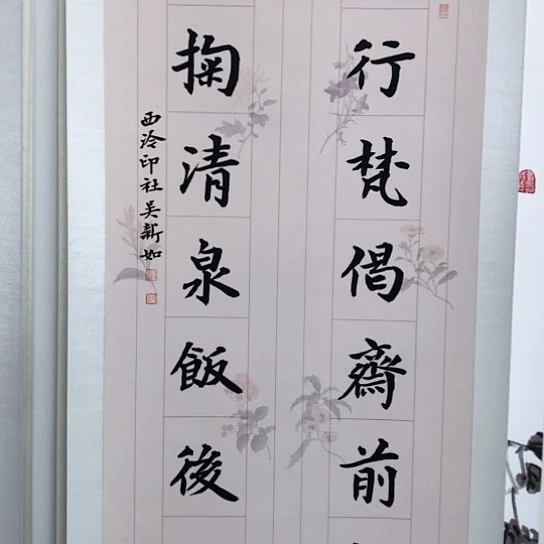 行梵偈齋前
掬清泉飯後
西泠印社吴新如